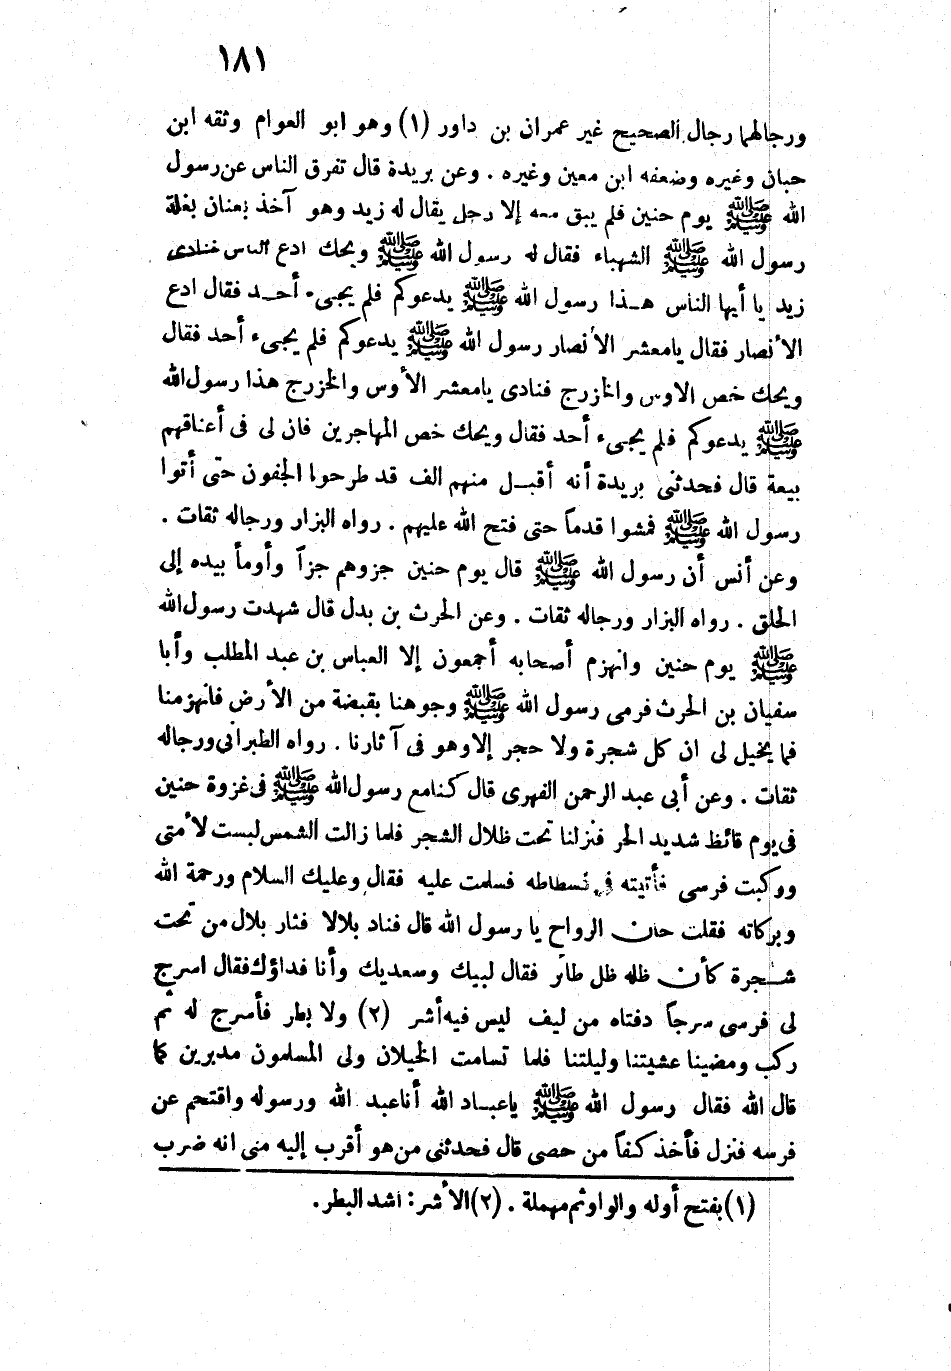 ١٨١
ورجالهما رجال الصحيح غير عمران بن داور (١) وهو ابو العوام وثقه ابن
حبان وغيره وضعفه ابن معين وغيره . وعن بريدة قال تفرق الناس عن رسول
الله ﷺ يوم حنين فلم يبق معه إلا رجل يقال له زيد وهو آخذ بعنان بغلة
رسول الله ﷺ الشهباء فقال له رسول الله ﷺ ويحك ادع الناس فنادى
زيد يا أيها الناس هـذا رسول الله ﷺ يدعوكم فلم يجىء أحـد فقال ادع
الأنصار فقال يامعشر الأنصار رسول الله ﷺ يدعوكم فلم يجىء أحد فقال
ويحك خص الاوس والخزرج فنادى يامعشر الأوس والخزرج هذا رسول الله
ﷺ يدعوكم فلم يجىء أحد فقال ويحك خص المهاجرين فان لى فى أعناقهم
بيعة قال فحدثنى بريدة أنه أقبـل منهم الف قد طرحوا الجفون حتى أتوا
رسول الله ﷺ فمشوا قدماً حتى فتح الله عليهم . رواه البزار ورجاله ثقات .
وعن أنس أن رسول الله ﷺ قال يوم حنين جزوهم جزاً وأومأ بيده إلى
الحلق . رواه البزار ورجاله ثقات . وعن الحرث بن بدل قال شهدت رسول الله
ﷺ يوم حنين وانهزم أصحابه أجمعون إلا العباس بن عبد المطلب وأبا
سفيان بن الحرث فرمى رسول الله ﷺ وجوهنا بقبضة من الأرض فانهزمنا
فما يخيل لى ان كل شجرة ولا حجر إلا وهو فى آثارنا . رواه الطبرانى ورجاله
ثقات . وعن أبى عبد الرحمن الفهرى قال كنا مع رسول الله ﷺ فى غزوة حنين
فى يوم قائظ شديد الحر فنزلنا تحت ظلال الشجر فلما زالت الشمس لبست لأمتى
وركبت فرسى فأتيته فى فسطاطه فسلمت عليه فقال وعليك السلام ورحمة الله
وبركاته فقلت حان الرواح يا رسول الله قال فناد بلالا فثار بلال من تحت
شـجرة كأن ظله ظل طائر فقال لبيك وسعديك وأنا فداؤك فقال اسرج
لى فرسى سرجاً دفتاه من ليف ليس فيه أشر (٢) ولا بطر فأسرج له ثم
ركب ومضينا عشيتنا وليلتنا فلما تسامت الخيلان ولى المسلمون مدبرين كما
قال الله فقال رسول الله ﷺ ياعبـاد الله أنا عبد الله ورسوله واقتحم عن
فرسه فنزل فأخذ كفاً من حصى قال فحدثنى من هو أقرب إليه منى انه ضرب
(١) بفتح أوله والواو ثم مهملة . (٢) الأشر : اشد البطر .